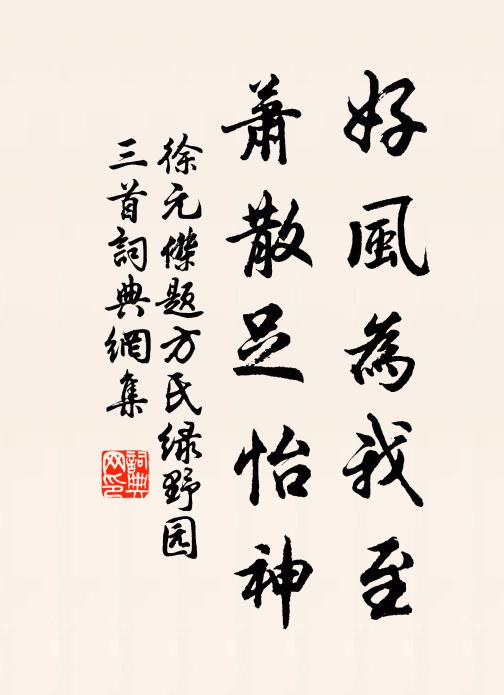 好風為我至
蕭散足怡神
徐元傑题方氏绿野园
三首詞典網集
詞典网印